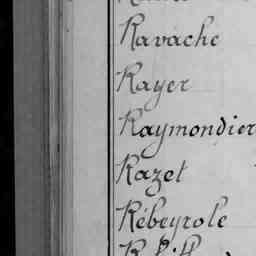 Ravache
Rayer
Raymondier
Razet
Rébeyrole